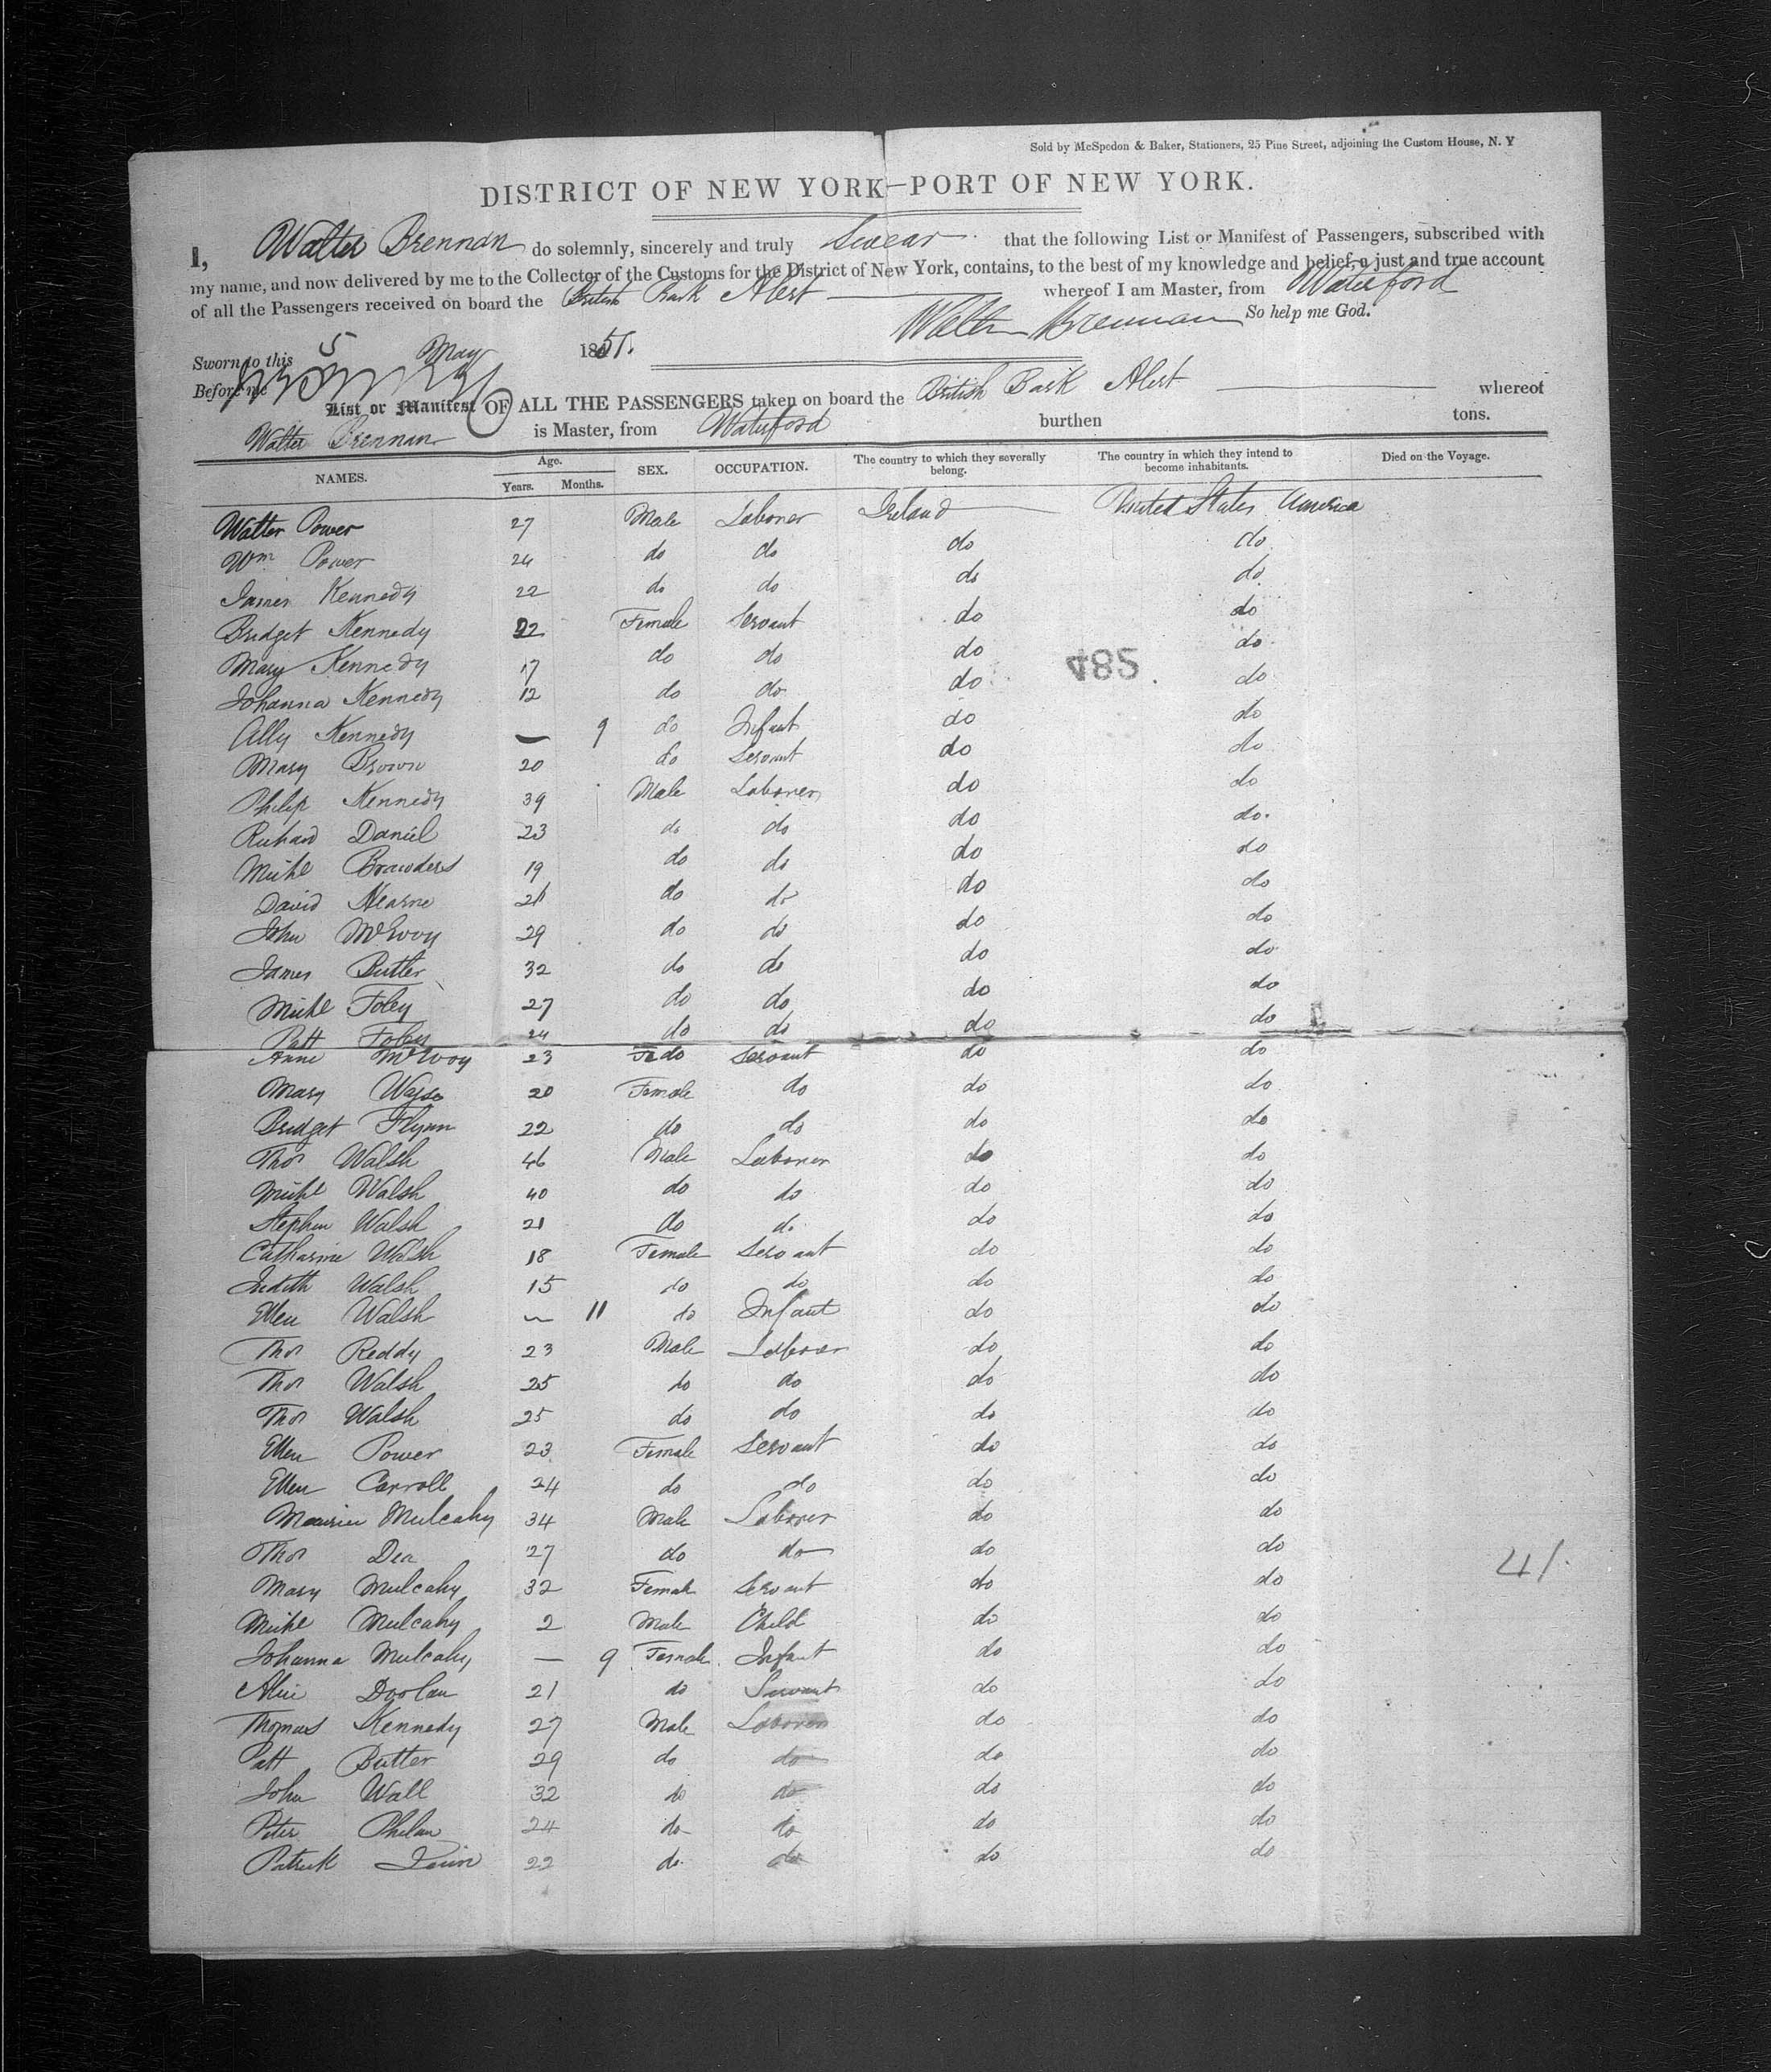 Sold by McSpedon & Baker, Stationers, 25 Pine Street, adjoining the Custom House, N. Y
DISTRICT OF NEW YORK—PORT OF NEW YORK.
I, Walter Brennan do solemnly, sincerely and truly Swear that the following List or Manifest of Passengers, subscribed with
my name, and now delivered by me to the Collector of the Customs for the District of New York, contains, to the best of my knowledge and belief, a just and true account
of all the Passengers received on board the British Bark Alert whereof I am Master, from Waterford
Walter Brennan So help me God.
Sworn to this 5 May 1851.
Before me
List or Manifest OF ALL THE PASSENGERS taken on board the British Bark Alert whereof
Walter Brennan is Master, from Waterford burthen tons.
NAMES. Age. Years. Months. SEX. OCCUPATION. The country to which they severally belong. The country in which they intend to become inhabitants. Died on the Voyage.
Walter Power 27 Male Laborer Ireland United States America
Wm Power 24 do do do do
James Kennedy 22 do do do do
Bridget Kennedy 22 Female Servant do do
Mary Kennedy 17 do do do do
485
Johanna Kennedy 12 do do do do
Ally Kennedy — 9 do Infant do do
Mary Brown 20 do Servant do do
Philip Kennedy 39 Male Laborer do do
Richard Daniel 23 do do do do.
Michl 19 do do do do
David Hearne 21 do do do do
John McEvoy 29 do do do do
James Butler 32 do do do do
Michl Foley 27 do do do do
Patt Foley 24 do do do do
Anne McEvoy 23 Fe do Servant do do
Mary 20 Female do do do
Bridget Flynn 22 do do do do
Thos Walsh 46 Male Laborer do do
Michl Walsh 40 do do do do
Stephen Walsh 21 do do do do
Catharine Walsh 18 Female Servant do do
Judith Walsh 15 do do do do
Ellen Walsh — 11 do Infant do do
Thos Reddy 23 Male Laborer do do
Thos Walsh 25 do do do do
Thos Walsh 25 do do do do
Ellen Power 23 Female Servant do do
Ellen Carroll 24 do do do do
Maurice Mulcahy 34 Male Laborer do do
Thos Dea 27 do do do do
41
Mary Mulcahy 32 Female Servant do do
Michl Mulcahy 2 Male Child do do
Johanna Mulcahy — 9 Female Infant do do
Alice Doolan 21 do Servant do do
Thomas Kennedy 27 Male Laborer do do
Patt Butler 29 do do do do
John Wall 32 do do do do
Peter Phelan 24 do do do do
Patrick 22 do do do do